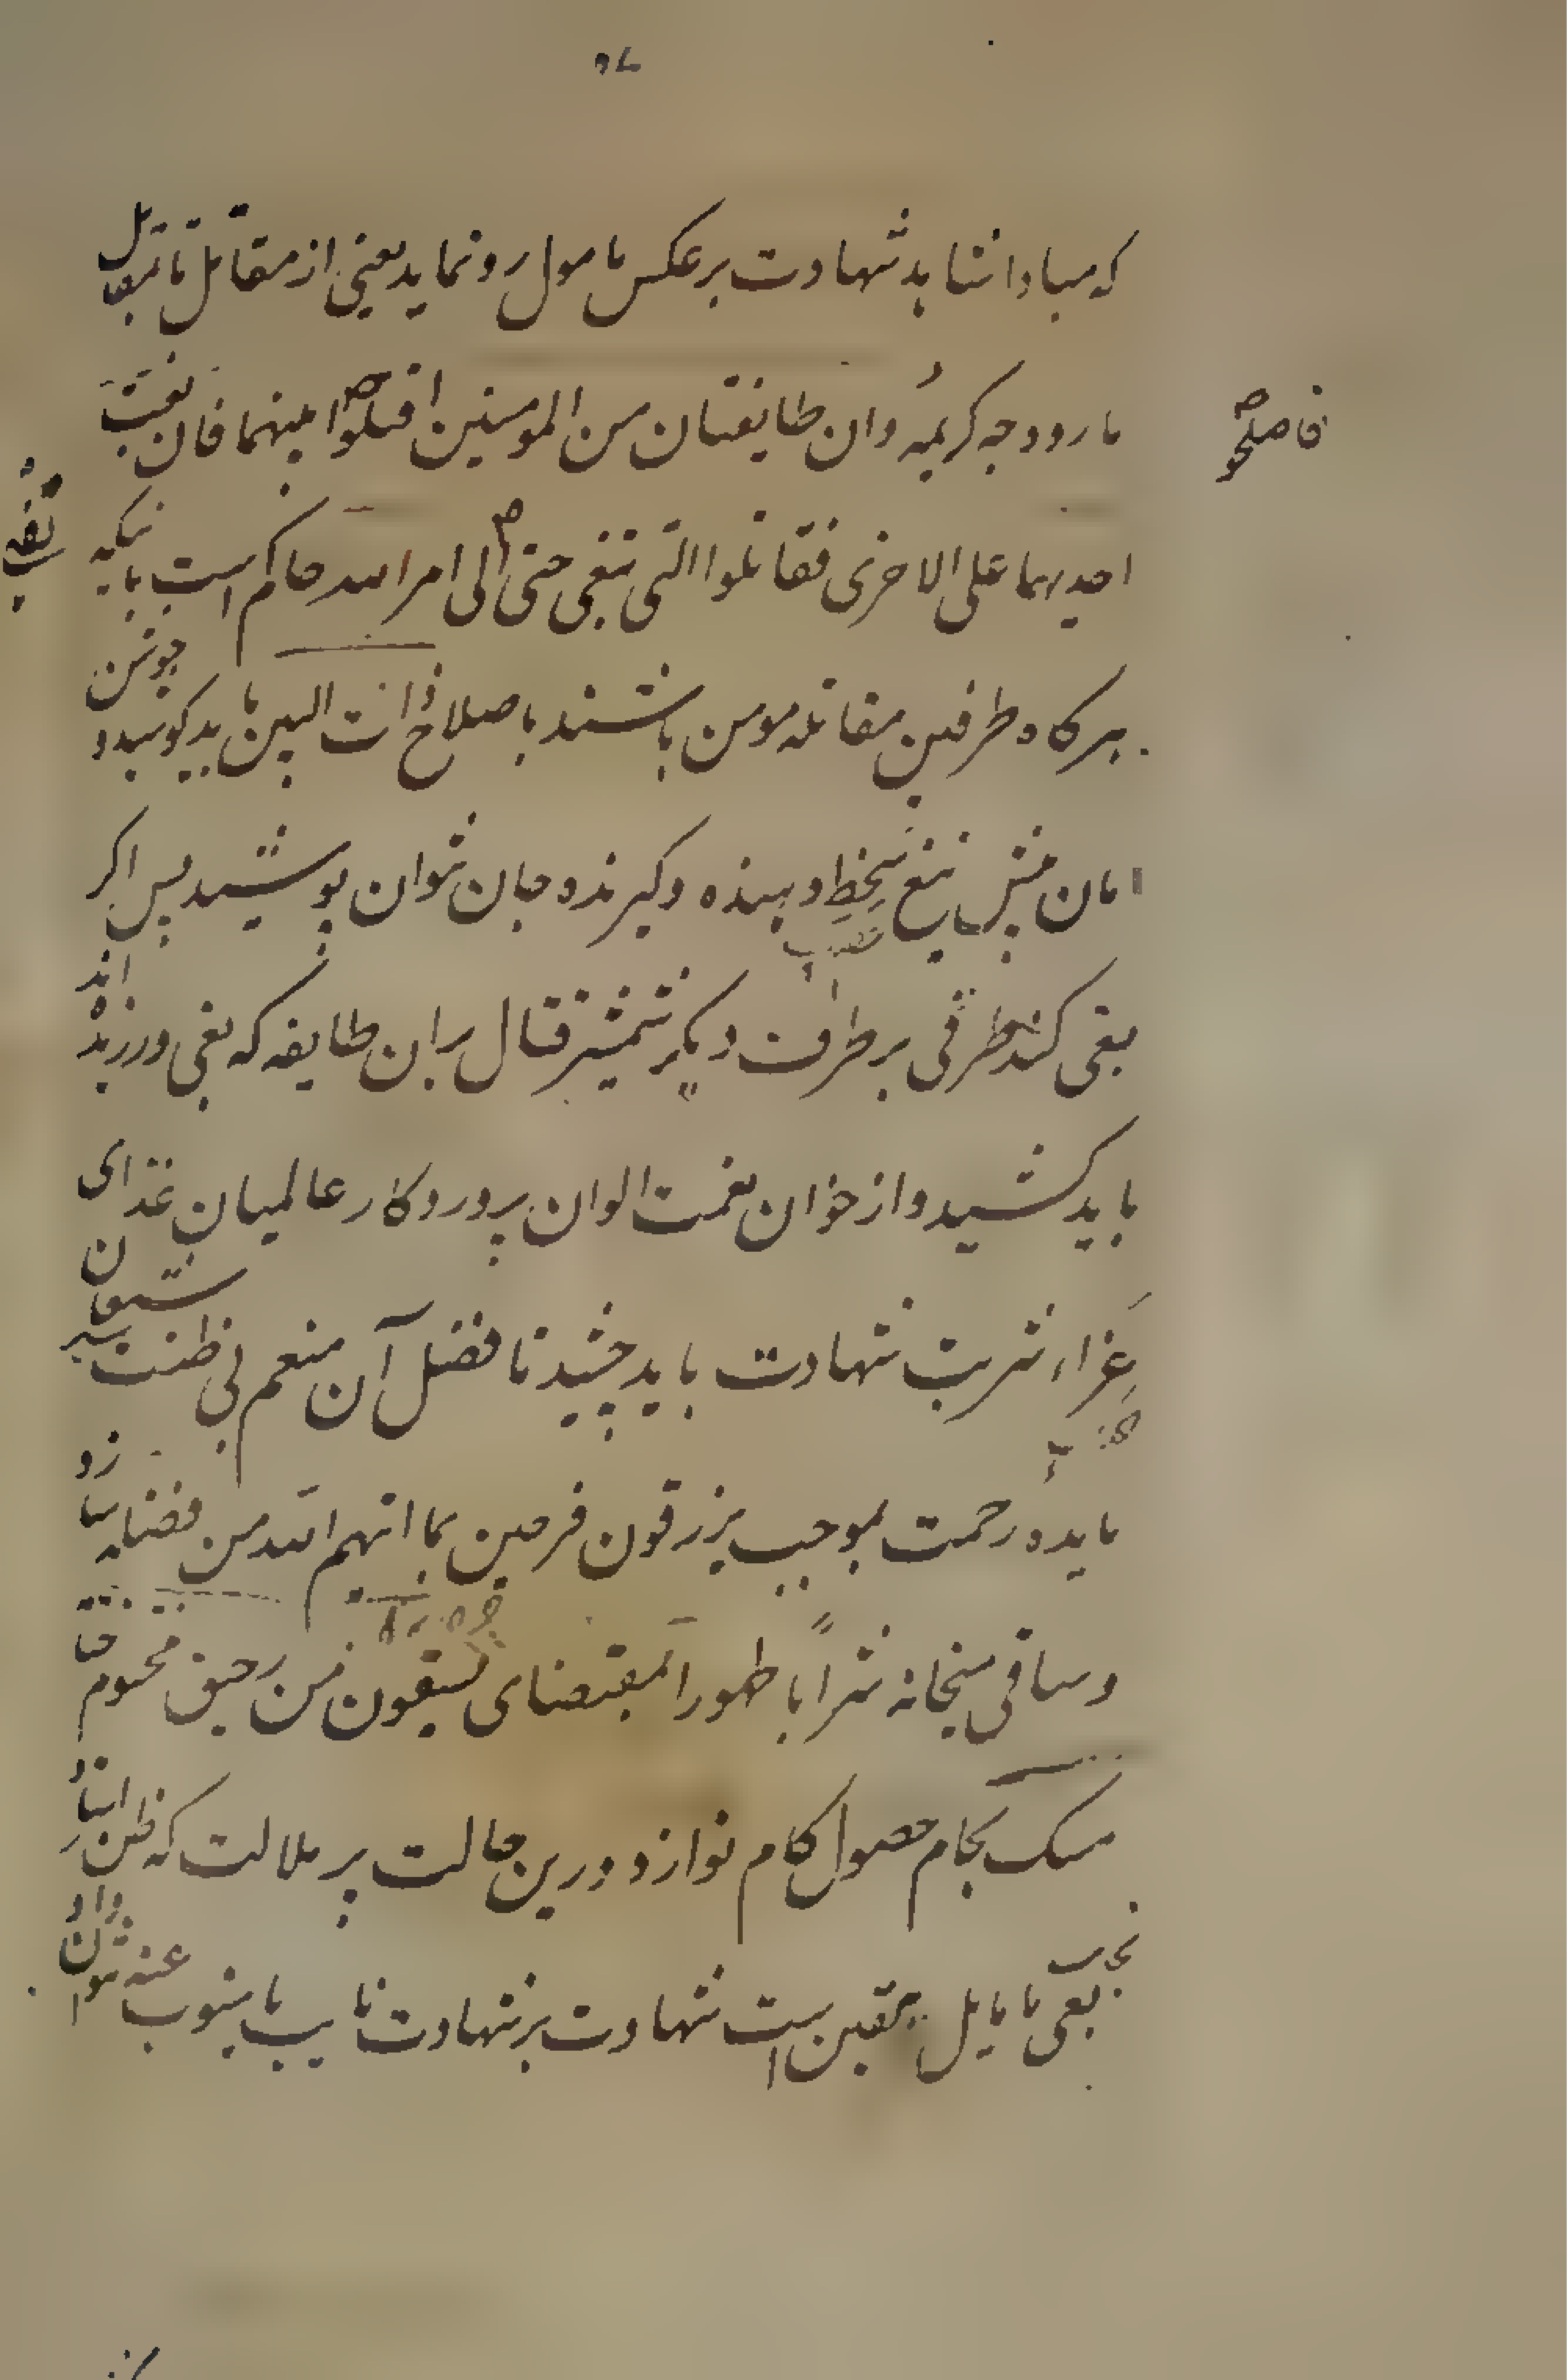 که مبادا شاهد شهادت بر عکس مامول رو نماید یعنی از مقاتل تا بقاتل
ما رود و جه کریمه وان طایفتان من المومنین اقتتلوا بینهما فان بغت
فاصلحو
احدیهما علی الاخری فقاتلوا التی تبغی حتی الی امر الله حاکم است باینکه
تفئ
هرگاه طرفین مقاتله مومن باشند باصلاح ذات البین باید کوشید و جوشن
امان تیغ بخط دهنده و گیرنده جان نتوان پوشید پس اگر
بغی کند طرفی بر طرف دیگر شمشیر قتال بران طایفه که بغی ورزیده اند
باید کشید و از خوان نعمت الوان پروردگار عالمیان غذای
غزاء شربت شهادت باید چشید تا فضل آن منعم بی ظنت
مایده رحمت بموجب یرزقون فرحین بما اتیهم الله من فضله سازد
و ساقی میخانه شراباً طهورا بمقتضای یسقون من رحیق مختوم ختا
مسک بجام حصول کام نوازد و درین حالت پر ملالت که ظن
بغی یقین است شهادت بر شهادت نایب منوب عنه نتوان داد